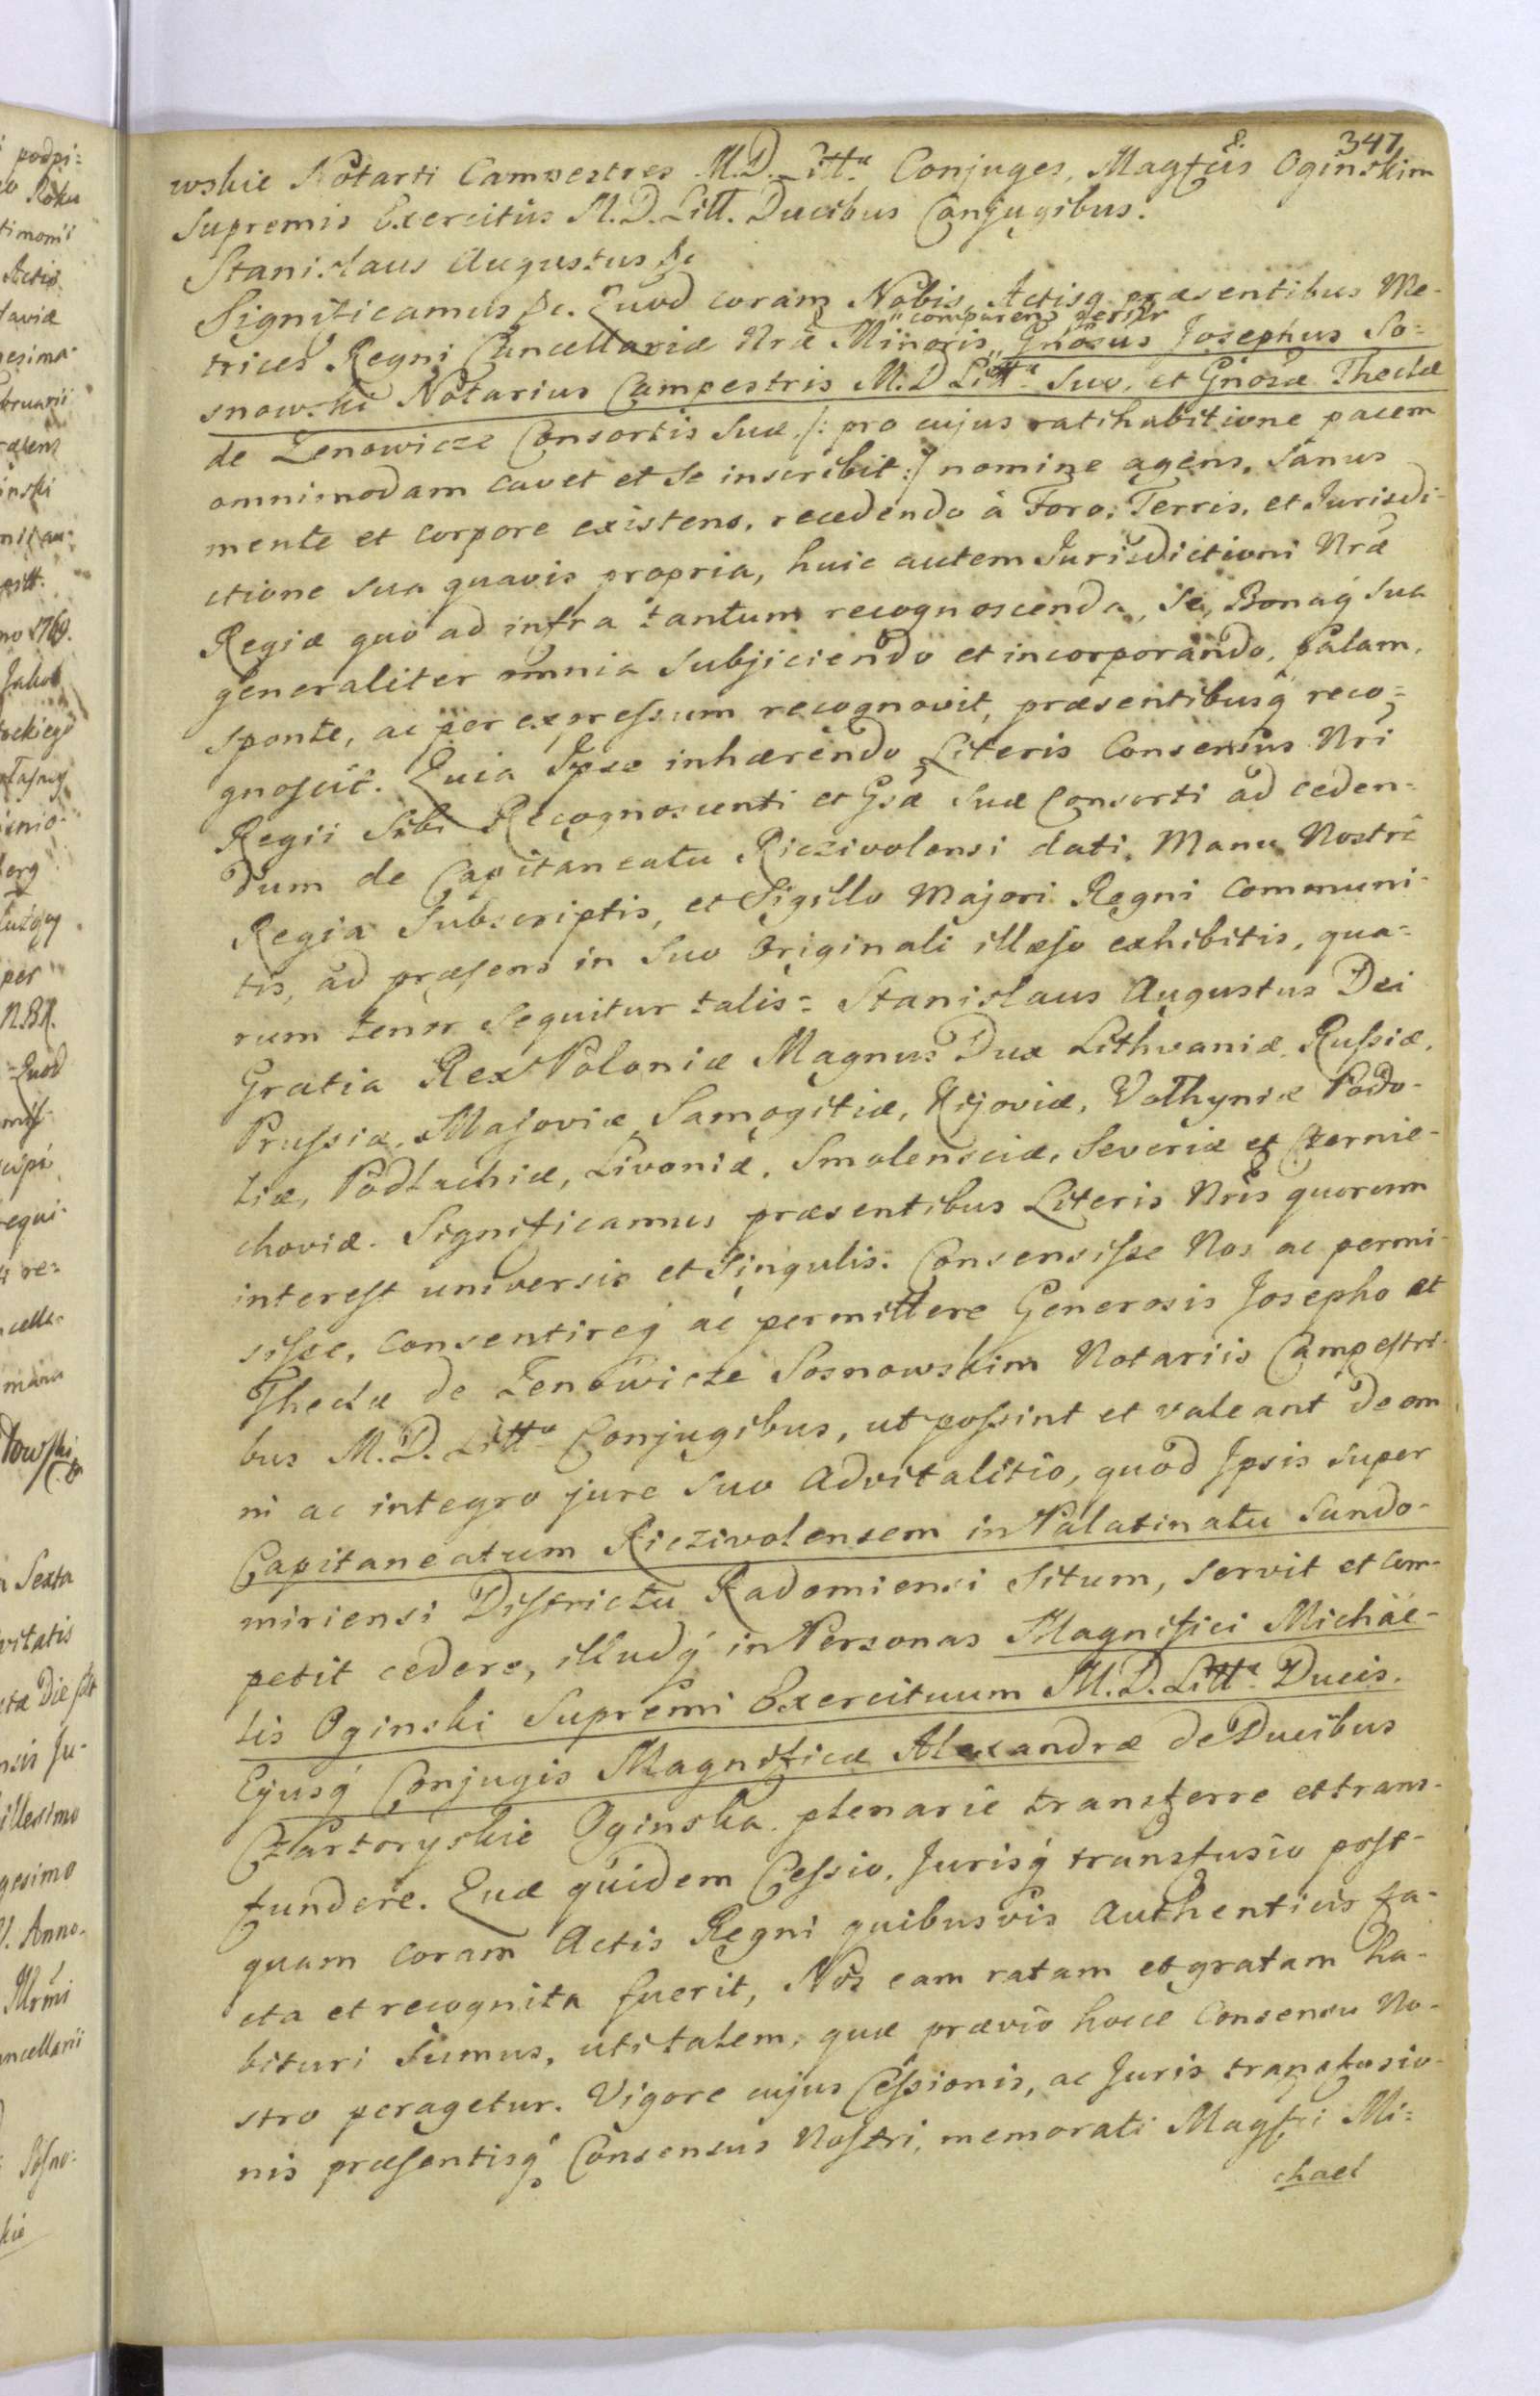 8. 347
wskie Notarii Campestres M.D. Litt. Conjuges, Magfcis Oginskim
Supremis Exercitûs M.D. Litt. Ducibus Conjugibus.
Stanislaus Augustus &c
Significamus &c. Quod coram Nobis, Actisq̃ præsentibus Me-
"comparens persler
trices Regni Cancellariæ Nræ Minoris," Gnosus Josephus So=
snowski Notarius Campestris M.D Litt. Suo, et Gnosæ Theclæ
de Zenowicze Consortis Suæ, /: pro cujus ratihabitione pacem
omnimodam cavet et se inscribit :/ nomine agens, Sanus
mente et corpore existens, recedendo à Foro, Terris, et Jurisdi-
ctione sua quavis propria, huic autem Jurisdictioni Nræ
Regiæ quo ad infra tantum recognoscenda, Se, Bonaq̃ sua
generaliter omnia Subjiciendo et incorporando, palam,
sponte, ac per expressum recognovit, præsentibusq̃ reco=
gnoscit. Quia Ipse inhærendo Literis Consensus Nri
Regii Sibi Recognoscenti et Gsæ Suæ Consorti ad ceden=
dum de Capitaneatu Riczivolensi dati, Manu Nostrâ
Regia Subscriptis, et Sigillo Majori Regni Communi-
tis, ad præsens in Suo Originali illæso exhibitis, qua-
rum tenor Sequitur talis= Stanislaus Augustus Dei
Gratia Rex Poloniæ Magnus Dux Lithvaniæ, Russiæ,
Prussiæ, Masoviæ, Samogitiæ, Kijoviæ, Volhyniæ Podo-
liæ, Podlachiæ, Livoniæ, Smolensciæ, Severiæ et Czernie-
choviæ. Significamus præsentibus Literis Nris quorum
interest universis et Singulis. Consensisse Nos ac permi-
sisse, consentireq̃ ac permittere Generosis Josepho et
Theclæ de Zenowicze Sosnowskim Notariis Campestri-
bus M.D. Litt. Conjugibus, ut possint et valeant de om
ni ac integro jure Suo Advitalitio, quod Ipsis super
Capitaneatum Riczivolensem in Palatinatu Sando-
miriensi Districtu Radomiensi Situm, servit et com-
petit cedere, illudq̃ in Personas Magnifici Michäe-
lis Oginski Supremi Exercituum M.D. Litt. Ducis,
Ejusq̃ Conjugis Magnificæ Alexandræ de Ducibus
Czartoryskie Oginska plenarie transferre et trans-
fundere. Quæ quidem Cessio, Jurisq̃ transfusio post-
quam coram Actis Regni quibusvis Authenticis fa-
cta et recognita fuerit, Nos eam ratam et gratam ha-
bituri Sumus, uti talem, quæ prævio hocce Consensu No-
stro peragetur. Vigore cujus Cessionis, ac Juris transfusio-
nis præsentisq̃ Consensus Nostri, memorati Magfci Mi=
chael